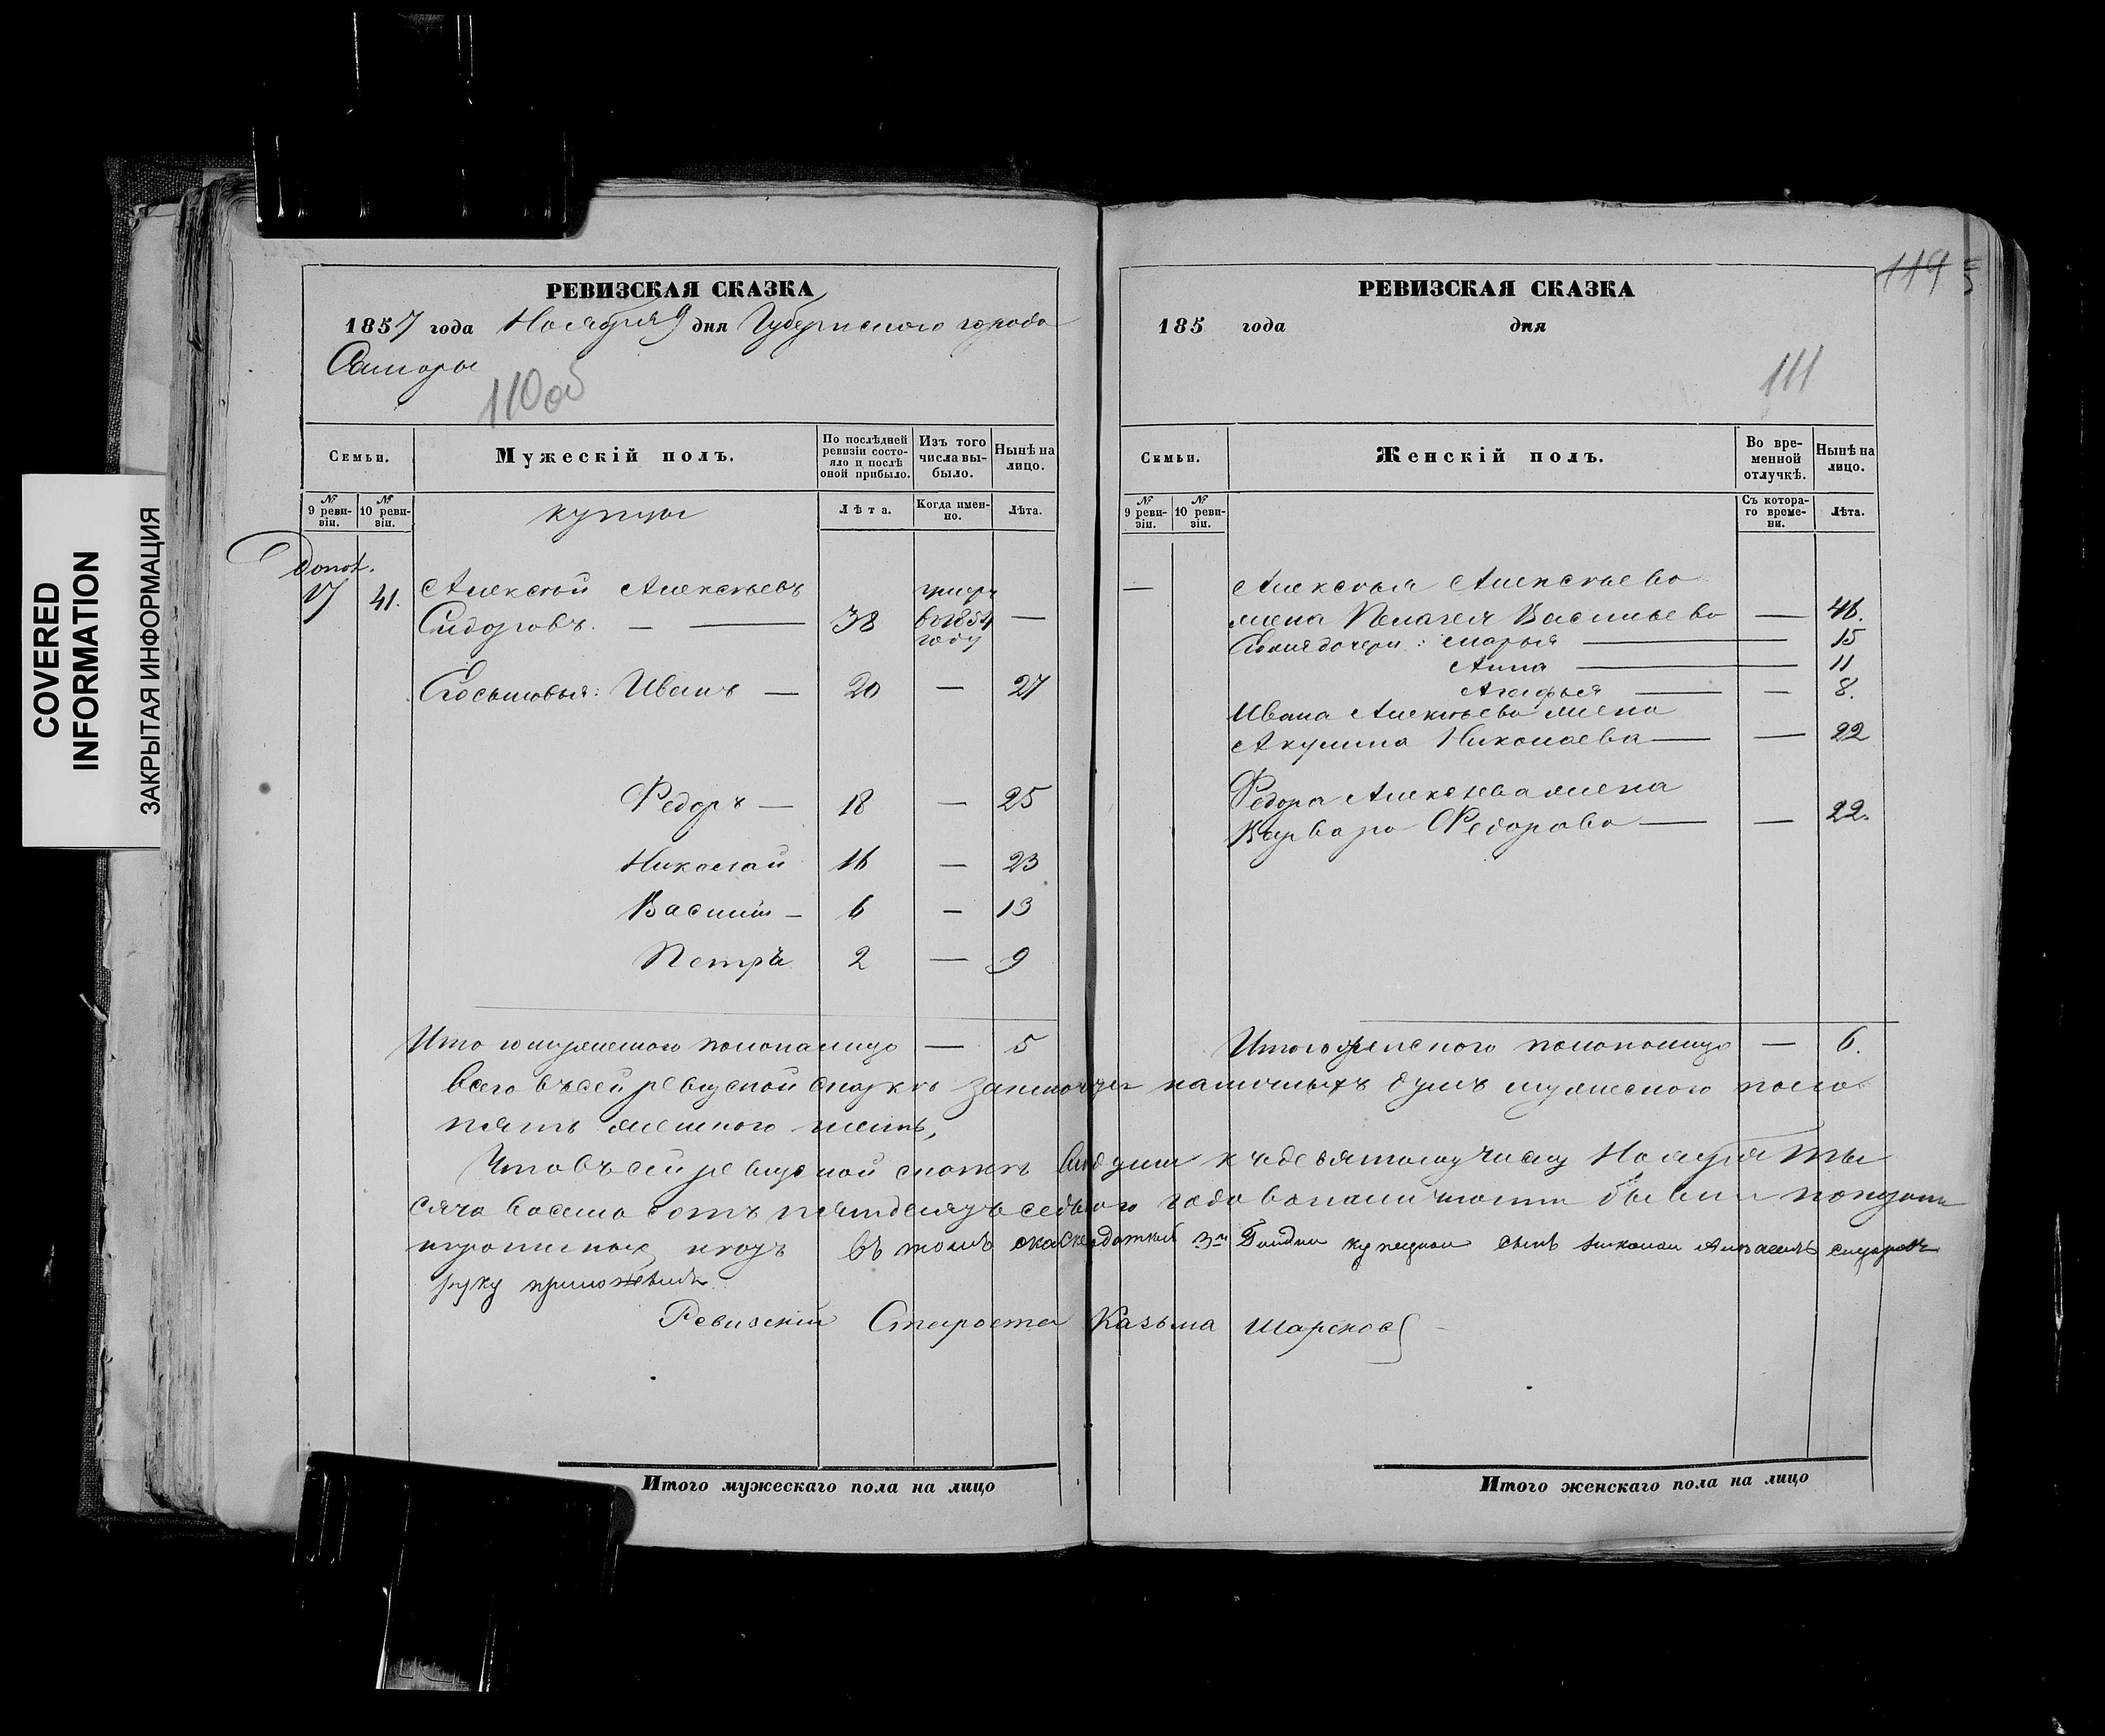 COVERED
INFORMATION
ЗАКРЫТАЯ ИНФОРМАЦИЯ
РЕВИЗСКАЯ СКАЗКА
1857 года Ноября 9 дня Губернского города
Самары
110об
Семьи.
Мужескій полъ.
По послѣдней ревизіи состояло и послѣ оной прибыло.
Изъ того числа выбыло.
Нынѣ на лицо.
№ 9 ревизіи.
№ 10 ревизіи.
купцы
Лѣта.
Когда именно.
Лѣта.
Допол.
17 41. Алексѣй Алексѣевъ
Сидоровъ. — 38 умеръ въ 1854 году —
Егосыновья: Иванъ — 20 — 27
Федоръ — 18 — 25
Николай 16 — 23
Василій — 6 — 13
Петръ 2 — 9
Итого мужеского пола налицо — 5
РЕВИЗСКАЯ СКАЗКА
119
185 года дня
111
Семьи.
Женскій полъ.
Во временной отлучкѣ.
Нынѣ на лицо.
№ 9 ревизіи.
№ 10 ревизіи.
Съ котораго времени.
Лѣта.
— Алексѣя Алексѣева
жена Пелагея Васильева — 46.
дочери: Марья — 15
Анна — 11
Агафья — — 8.
Ивана Алексѣева жена
Акулина Николаева — — 22
Федора Алексѣева жена
Варвара Федорова — — 22.
Итого женского пола налицо — 6.
Всего въ сей ревизской сказкѣ наличныхъ душъ мужеского пола
пять женского шесть,
Что въ сей ревизской сказкѣ души къ девятому числу Ноября ты
сяча восемь сотъ пятдесятъ седьмого года в наличности были показаны
въ томъ 3й Гилдии сынъ Николай Сидоровъ
руку приложилъ
Ревизскій Староста Казьма
Итого мужескаго пола на лицо
Итого женскаго пола на лицо